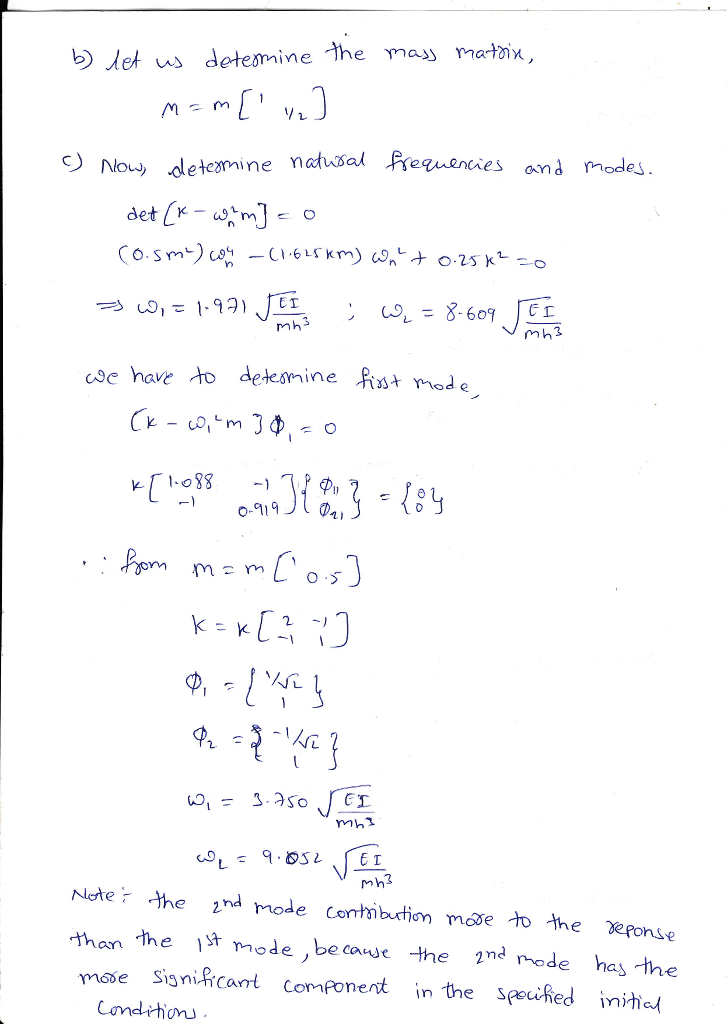 b) let us determine the mass matrix,
m = m [1 1/2]
c) Now, determine natural frequencies and modes.
det [k - ωn²m] = 0
(0.5m²) ωn⁴ - (1.625km) ωn² + 0.25 k² = 0
⇒ ω₁ = 1.971 √(EI/mh³) ; ω₂ = 8.609 √(EI/mh³)
we have to determine first mode,
(k - ω₁²m ] Φ₁ = 0
k [1.088 -1
-1 0.919] {Φ₁₁
Φ₂₁} = {0
0}
∵ from m = m [1 0.5]
k = k [2 -1
-1 1]
Φ₁ = {1/√2
1}
Φ₂ = {-1/√2
1}
ω₁ = 3.750 √(EI/mh³)
ω₂ = 9.052 √(EI/mh³)
Note :- the 2nd mode contribution more to the reponse
than the 1st mode, because the 2nd mode has the
more significant component in the specified initial
Conditions.